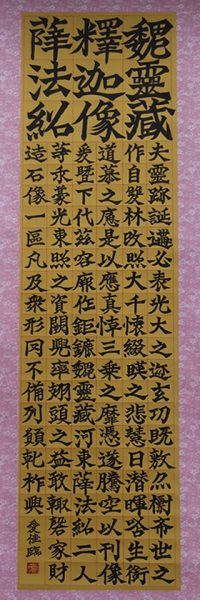 魏靈藏
釋迦像
薛法紹
夫靈跡誕遘必表光大之迹玄功既敷亦樹希世之
作自雙林改照大千懷綴暎之悲慧日潛暉唅生銜
道慕之應是以應真悼三乘之靡憑遂騰空以刊像
爰暨下代茲容厥作鉅鹿魏靈藏河東薛法紹二人
等求豪光東照之資闕兜率翅頭之益敢輒磬家財
造石像一區凡及衆形罔不備列願乾祚興
愛佳臨